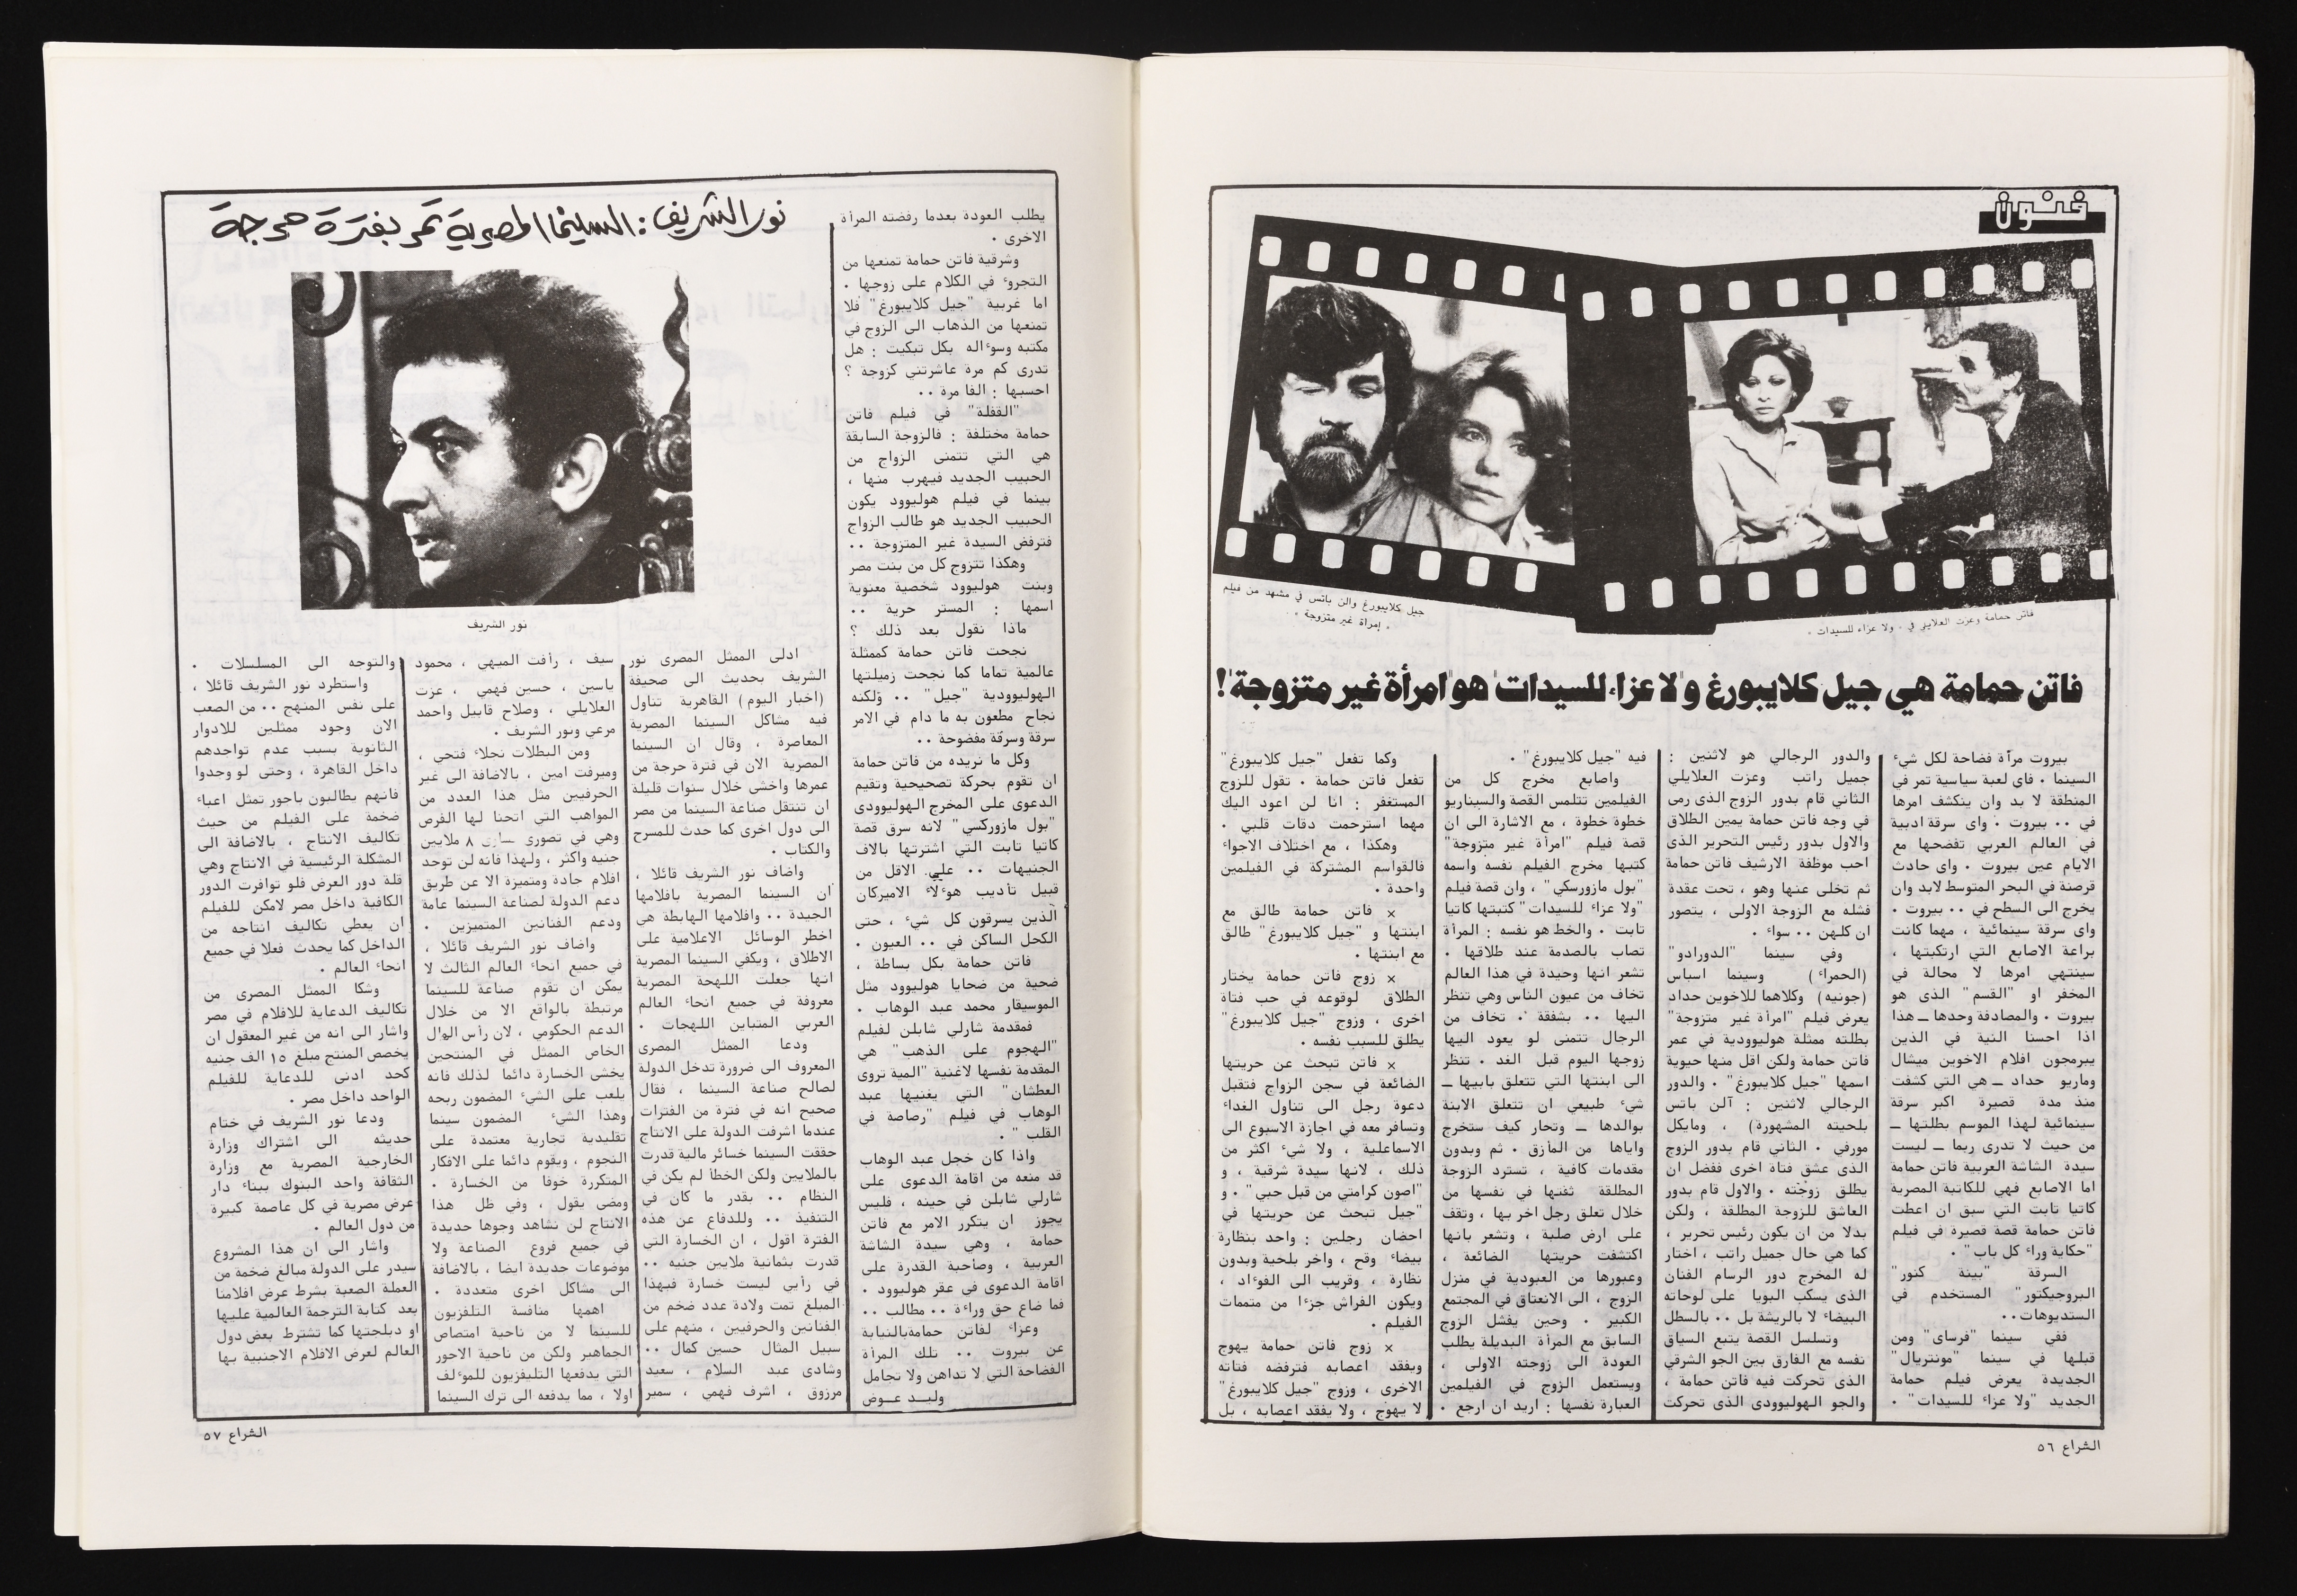 فنون
جيل كلايبورغ والن باتس في مشهد من فيلم
« إمرأة غير متزوجة »
فاتن حمامة وعزت العلايلي في « ولا عزاء للسيدات »
فاتن حمامة هي جيل كلايبورغ و"لا عزاء للسيدات" هو "امرأة غير متزوجة"!
بيروت مرآة فضاحة لكل شيء
السينما . فاي لعبة سياسية تمر في
المنطقة لا بد وان ينكشف امرها
في .. بيروت . واى سرقة ادبية
في العالم العربي تفضحها مع
الايام عين بيروت . واى حادث
قرصنة في البحر المتوسط لابد وان
يخرج الى السطح في .. بيروت .
واى سرقة سينمائية ، مهما كانت
براعة الاصابع التي ارتكبتها ،
سينتهي امرها لا محالة في
المخفر او "القسم" الذى هو
بيروت . والمصادفة وحدها ــ هذا
اذا احسنا النية في الذين
يبرمجون افلام الاخوين ميشال
وماريو حداد ــ هي التي كشفت
منذ مدة قصيرة اكبر سرقة
سينمائية لهذا الموسم بطلتها ــ
من حيث لا تدرى ربما ــ ليست
سيدة الشاشة العربية فاتن حمامة
اما الاصابع فهي للكاتبة المصرية
كاتيا ثابت التي سبق ان اعطت
فاتن حمامة قصة قصيرة في فيلم
"حكاية وراء كل باب" .
السرقة "بينة كنور"
البروجيكتور" المستخدم في
الستديوهات..
ففي سينما "فرساى" ومن
قبلها في سينما "مونتريال"
الجديدة يعرض فيلم حمامة
الجديد "ولا عزاء للسيدات" .
والدور الرجالي هو لاثنين :
جميل راتب وعزت العلايلي
الثاني قام بدور الزوج الذى رمى
في وجه فاتن حمامة يمين الطلاق
والاول بدور رئيس التحرير الذى
احب موظفة الارشيف فاتن حمامة
ثم تخلى عنها وهو ، تحت عقدة
فشله مع الزوجة الاولى ، يتصور
ان كلهن .. سواء .
وفي سينما "الدورادو"
(الحمراء) وسينما اسباس
(جونيه) وكلاهما للاخوين حداد
يعرض فيلم "امرأة غير متزوجة"
بطلته ممثلة هوليوودية في عمر
فاتن حمامة ولكن اقل منها حيوية
اسمها "جيل كلايبورغ" . والدور
الرجالي لاثنين : آلن باتس
بلحيته المشهورة) ، ومايكل
مورفي . الثاني قام بدور الزوج
الذى عشق فتاة اخرى ففضل ان
يطلق زوجته . والاول قام بدور
العاشق للزوجة المطلقة ، ولكن
بدلا من ان يكون رئيس تحرير ،
كما هي حال جميل راتب ، اختار
له المخرج دور الرسام الفنان
الذى يسكب البويا على لوحاته
البيضاء لا بالريشة بل .. بالسطل
وتسلسل القصة يتبع السياق
نفسه مع الفارق بين الجو الشرقي
الذى تحركت فيه فاتن حمامة ،
والجو الهوليوودى الذى تحركت
فيه "جيل كلايبورغ" .
واصابع مخرج كل من
الفيلمين تتلمس القصة والسيناريو
خطوة خطوة ، مع الاشارة الى ان
قصة فيلم "امرأة غير متزوجة"
كتبها مخرج الفيلم نفسه واسمه
"بول مازورسكي" ، وان قصة فيلم
"ولا عزاء للسيدات" كتبتها كاتيا
ثابت . والخط هو نفسه : المرأة
تصاب بالصدمة عند طلاقها .
تشعر انها وحيدة في هذا العالم
تخاف من عيون الناس وهي تنظر
اليها .. بشفقة . تخاف من
الرجال تتمنى لو يعود اليها
زوجها اليوم قبل الغد . تنظر
الى ابنتها التي تتعلق بابيها ــ
شيء طبيعي ان تتعلق الابنة
بوالدها ــ وتحار كيف ستخرج
واياها من المأزق . ثم وبدون
مقدمات كافية ، تسترد الزوجة
المطلقة ثقتها في نفسها من
خلال تعلق رجل اخر بها ، وتقف
على ارض صلبة ، وتشعر بانها
اكتشفت حريتها الضائعة ،
وعبورها من العبودية في منزل
الزوج ، الى الانعتاق في المجتمع
الكبير . وحين يفشل الزوج
السابق مع المرأة البديلة يطلب
العودة الى زوجته الاولى ،
ويستعمل الزوج في الفيلمين
العبارة نفسها : اريد ان ارجع .
وكما تفعل "جيل كلايبورغ"
تفعل فاتن حمامة . تقول للزوج
المستغفر : انا لن اعود اليك
مهما استرحمت دقات قلبي .
وهكذا ، مع اختلاف الاجواء
فالقواسم المشتركة في الفيلمين
واحدة .
× فاتن حمامة طالق مع
ابنتها و "جيل كلايبورغ" طالق
مع ابنتها .
× زوج فاتن حمامة يختار
الطلاق لوقوعه في حب فتاة
اخرى ، وزوج "جيل كلايبورغ"
يطلق للسبب نفسه .
× فاتن تبحث عن حريتها
الضائعة في سجن الزواج فتقبل
دعوة رجل الى تناول الغداء
وتسافر معه في اجازة الاسبوع الى
الاسماعلية ، ولا شيء اكثر من
ذلك ، لانها سيدة شرقية ، و
"اصون كرامتي من قبل حبي" . و
"جيل تبحث عن حريتها في
احضان رجلين : واحد بنظارة
بيضاء وقح ، واخر بلحية وبدون
نظارة ، وقريب الى الفوءاد ،
ويكون الفراش جزءا من متممات
الفيلم .
× زوج فاتن حمامة يهوج
ويفقد اعصابه فترفضه فتاته
الاخرى ، وزوج "جيل كلايبورغ"
لا يهوج ، ولا يفقد اعصابه ، بل
الشراع ٥٦
يطلب العودة بعدما رفضته المرأة
الاخرى .
وشرقية فاتن حمامة تمنعها من
التجروء في الكلام على زوجها .
اما غربية "جيل كلايبورغ" فلا
تمنعها من الذهاب الى الزوج في
مكتبه وسوءاله بكل تبكيت : هل
تدرى كم مرة عاشرتني كزوجة ؟
احسبها : الفا مرة ..
"القفلة" في فيلم فاتن
حمامة مختلفة : فالزوجة السابقة
هي التي تتمنى الزواج من
الحبيب الجديد فيهرب منها ،
بينما في فيلم هوليوود يكون
الحبيب الجديد هو طالب الزواج
فترفض السيدة غير المتزوجة ..
وهكذا تتزوج كل من بنت مصر
وبنت هوليوود شخصية معنوية
اسمها : المستر حرية ..
ماذا نقول بعد ذلك ؟
نجحت فاتن حمامة كممثلة
عالمية تماما كما نجحت زميلتها
الهوليوودية "جيل" .. ولكنه
نجاح مطعون به ما دام في الامر
سرقة وسرقة مفضوحة ..
وكل ما نريده من فاتن حمامة
ان تقوم بحركة تصحيحية وتقيم
الدعوى على المخرج الهوليوودى
"بول مازوركسي" لانه سرق قصة
كاتيا ثابت التي اشترتها بالاف
الجنيهات .. على الاقل من
قبيل تأديب هوءلاء الاميركان
الذين يسرقون كل شيء ، حتى
الكحل الساكن في .. العيون .
فاتن حمامة بكل بساطة ،
ضحية من ضحايا هوليوود مثل
الموسيقار محمد عبد الوهاب .
فمقدمة شارلي شابلن لفيلم
"الهجوم على الذهب" هي
المقدمة نفسها لاغنية "المية تروى
العطشان" التي يغنيها عبد
الوهاب في فيلم "رصاصة في
القلب " .
واذا كان خجل عبد الوهاب
قد منعه من اقامة الدعوى على
شارلي شابلن في حينه ، فليس
يجوز ان يتكرر الامر مع فاتن
حمامة ، وهي سيدة الشاشة
العربية ، وصاحبة القدرة على
اقامة الدعوى في عقر هوليوود .
فما ضاع حق وراءه .. مطالب ..
وعزاء لفاتن حمامة بالنيابة
عن بيروت .. تلك المرأة
الفضاحة التي لا تداهن ولا تجامل
وليـد عـوض
نور الشريف : السينما المصرية تمر بفترة حرجة
نور الشريف
ادلى الممثل المصرى نور
الشريف بحديث الى صحيفة
(اخبار اليوم) القاهرية تناول
فيه مشاكل السينما المصرية
المعاصرة ، وقال ان السينما
المصرية الان في فترة حرجة من
عمرها واخشى خلال سنوات قليلة
ان تنتقل صناعة السينما من مصر
الى دول اخرى كما حدث للمسرح
والكتاب .
واضاف نور الشريف قائلا ،
ان السينما المصرية بافلامها
الجيدة .. وافلامها الهابطة هي
اخطر الوسائل الاعلامية على
الاطلاق ، ويكفي السينما المصرية
انها جعلت اللهجة المصرية
معروفة في جميع انحاء العالم
العربي المتباين اللهجات .
ودعا الممثل المصرى
المعروف الى ضرورة تدخل الدولة
لصالح صناعة السينما ، فقال
صحيح انه في فترة من الفترات
عندما اشرفت الدولة على الانتاج
حققت السينما خسائر مالية قدرت
بالملايين ولكن الخطأ لم يكن في
النظام .. بقدر ما كان في
التنفيذ .. وللدفاع عن هذه
الفترة اقول ، ان الخسارة التي
قدرت بثمانية ملايين جنيه ..
في رأيي ليست خسارة فبهذا
المبلغ تمت ولادة عدد ضخم من
الفنانين والحرفيين ، منهم على
سبيل المثال حسين كمال ..
وشادى عبد السلام ، سعيد
مرزوق ، اشرف فهمي ، سمير
سيف ، رأفت الميهي ، محمود
ياسين ، حسين فهمي ، عزت
العلايلي ، وصلاح قابيل واحمد
مرعي ونور الشريف .
ومن البطلات نجلاء فتحي ،
وميرفت امين ، بالاضافة الى غير
الحرفيين مثل هذا العدد من
المواهب التي اتحنا لها الفرص
وهي في تصورى ٨ ملايين
جنيه واكثر ، ولهذا فانه لن توجد
افلام جادة ومتميزة الا عن طريق
دعم الدولة لصناعة السينما عامة
ودعم الفنانين المتميزين .
واضاف نور الشريف قائلا ،
في جميع انحاء العالم الثالث لا
يمكن ان تقوم صناعة للسينما
مرتبطة بالواقع الا من خلال
الدعم الحكومي ، لان رأس المال
الخاص الممثل في المنتجين
يخشى الخسارة دائما لذلك فانه
يلعب على الشيء المضمون ربحه
وهذا الشيء المضمون سينما
تقليدية تجارية معتمدة على
النجوم ، ويقوم دائما على الافكار
المتكررة خوفا من الخسارة .
ومضى يقول ، وفي ظل هذا
الانتاج لن نشاهد وجوها جديدة
في جميع فروع الصناعة ولا
موضوعات جديدة ايضا ، بالاضافة
الى مشاكل اخرى متعددة .
اهمها منافسة التلفزيون
للسينما لا من ناحية امتصاص
الجماهير ولكن من ناحية الاجور
التي يدفعها التليفزيون للموءلف
اولا ، مما يدفعه الى ترك السينما
والتوجه الى المسلسلات .
واستطرد نور الشريف قائلا ،
على نفس المنهج .. من الصعب
الان وجود ممثلين للادوار
الثانوية بسبب عدم تواجدهم
داخل القاهرة ، وحتى لو وجدوا
فانهم يطالبون باجور تمثل اعباء
ضخمة على الفيلم من حيث
تكاليف الانتاج ، بالاضافة الى
المشكلة الرئيسية في الانتاج وهي
قلة دور العرض فلو توافرت الدور
الكافية داخل مصر لامكن للفيلم
ان يعطي تكاليف انتاجه من
الداخل كما يحدث فعلا في جميع
انحاء العالم .
وشكا الممثل المصرى من
تكاليف الدعاية للافلام في مصر
واشار الى انه من غير المعقول ان
يخصص المنتج مبلغ ١٥ الف جنيه
كحد ادنى للدعاية للفيلم
الواحد داخل مصر .
ودعا نور الشريف في ختام
حديثه الى اشتراك وزارة
الخارجية المصرية مع وزارة
الثقافة واحد البنوك ببناء دار
عرض مصرية في كل عاصمة كبيرة
من دول العالم .
واشار الى ان هذا المشروع
سيدر على الدولة مبالغ ضخمة من
العملة الصعبة بشرط عرض افلامنا
بعد كتابة الترجمة العالمية عليها
او دبلجتها كما تشترط بعض دول
العالم لعرض الافلام الاجنبية بها
الشراع ٥٧